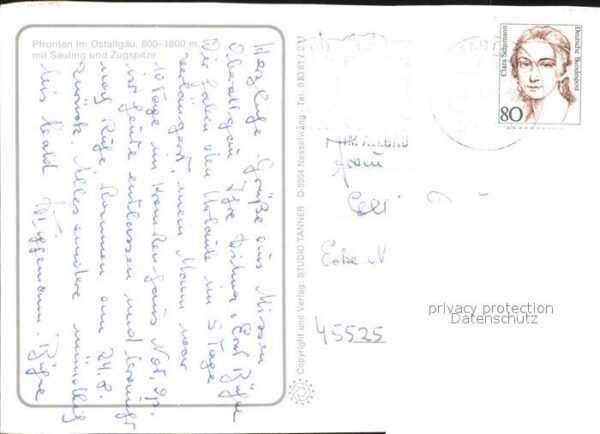 Pfronten im Ostallgäu, 800-1800 m,
mit Säuling und Zugspitze
Herzliche Grüße aus Missen
Oberallgäu Ihre Dilma, Earl Bühne
Wir haben den Urlaub um 5 Tage
verlängert, mein Mann war
10 Tage im Krankenhaus Not. Op.
ist heute entlassen und braucht
noch Ruhe kommen am 24.8.
zurück. Alles andere mündlich
bis bald Wiggemann. Bühne
Copyright und Verlag: STUDIO TANNER D-8964 Nesselwang · Tel. 0 83 61 / 2 11
IM ALLGÄU
Clara Schumann
Deutsche Bundespost
80
Frau
Ecke N
45525
privacy protection
Datenschutz